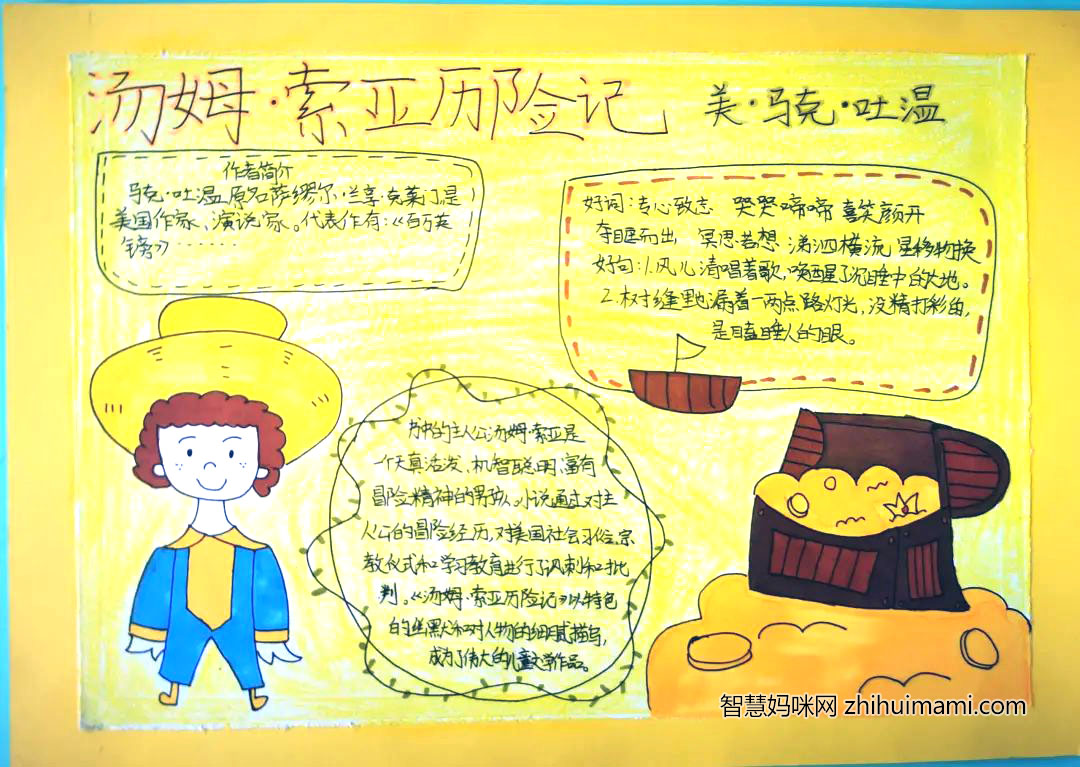 汤姆·索亚历险记
美·马克·吐温
作者简介
马克·吐温,原名萨缪尔·兰亨·克莱门,是
美国作家、演说家。代表作有:《百万英
镑》······
好词:专心致志 哭哭啼啼 喜笑颜开
夺眶而出 冥思苦想 涕泗横流 星移物换
好句:1.风儿清唱着歌,唤醒了沉睡中的大地。
2.树缝里也漏着一两点路灯光,没精打彩的,
是瞌睡人的眼。
书中的主人公汤姆·索亚是
一个天真活发、机智聪明、富有
冒险精神的男孩。小说通过对主
人公的冒险经历,对美国社会习俗、宗
教仪式和学习教育进行了讽刺和批
判。《汤姆·索亚历险记》以特色
的幽默和对人物的细腻描写,
成为了伟大的儿童文学作品。
智慧妈咪网 zhihuimami.com